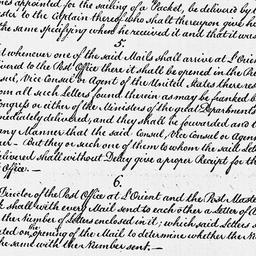 mes appointed for the sailing of a Packet, be delivered by t
ster to the Captain thereof, who shall thereupon give his
the same specifying when he received it and that it was
5.
t whenever one of the said Mails shall arrive at L'Orient
ivered to the Post Office there it shall be opened in the Pre
nsul, Vice Consul or Agent of the United States there res
om all such Letters found therein as may be franked by
ongress or either of the Ministers of the great Departments
mediately delivered, and they shall be forwarded and t
any Manner that the said Consul, Vice Consul or Agent
er — But they or such one of them to whom the said Lette
elivered shall without Delay give a proper Receipt for th
Office. —
6.
Director of the Post Office at L'Orient and the Post Maste
k shall with every Mail send to each other a Letter of A
the Number of Letters enclosed in it; which said Letters s
on the opening of the Mail to determine whether the N
the same with the Number sent. —